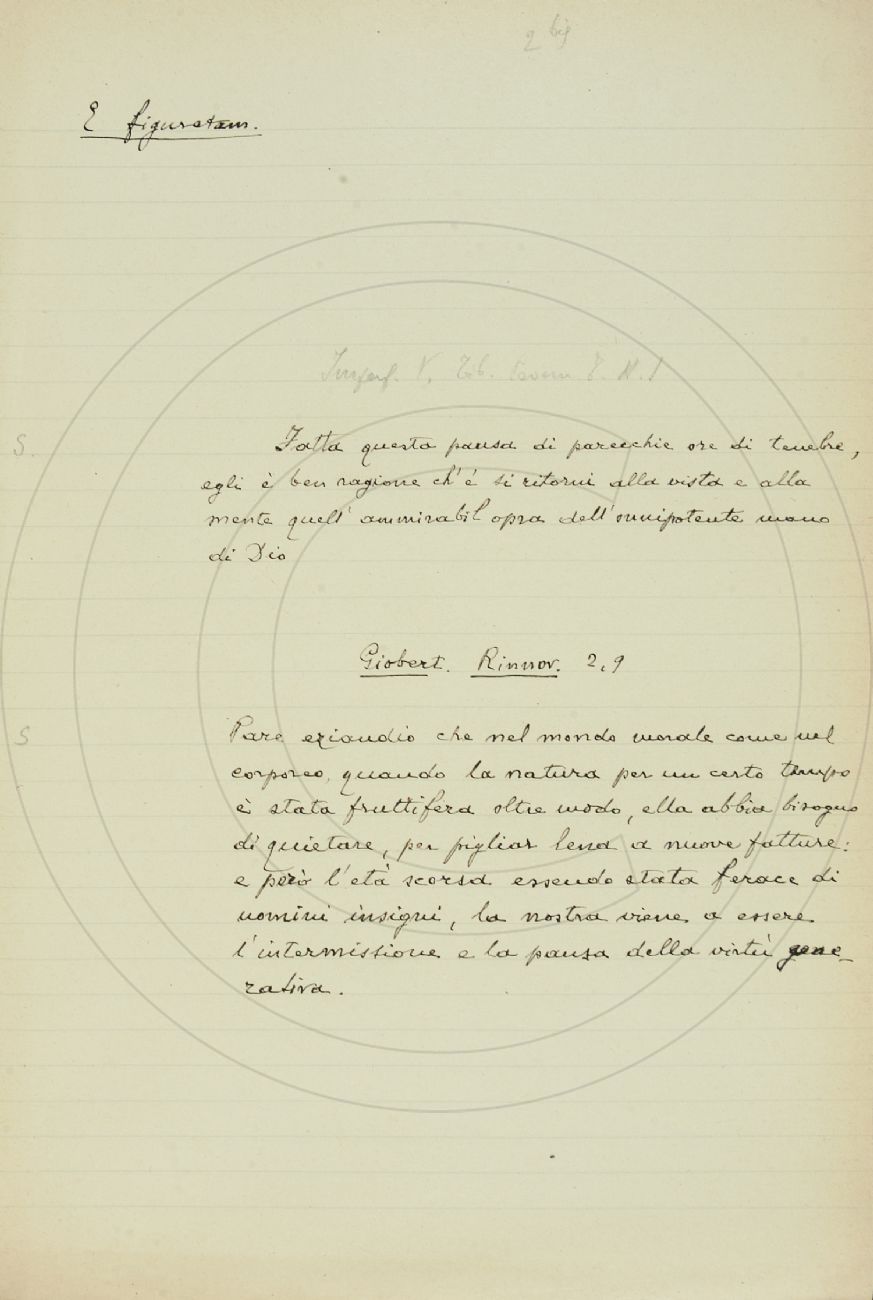 2 bis
E figuratam.
Imperf. V. Tb.
S.
Fatta questa pausa di parecchie ore di tenebre,
egli è ben ragione ch'e' si ritorni alla vista e alla
mente quell' ammirabil opra dell'onnipotente mano
di Dio
Giobert. Rinnov. 2, 9
S
Pare eziandio che nel mondo morale come nel
corporeo, quando la natura per un certo tempo
è stata fruttifera oltre modo, ella abbia bisogno
di quietare, per pigliar lena a nuove fatture:
e però l'età scorsa essendo stata ferace di
uomini insigni, la nostra viene a essere
l'intermissione e la pausa della virtù gene-
rativa.